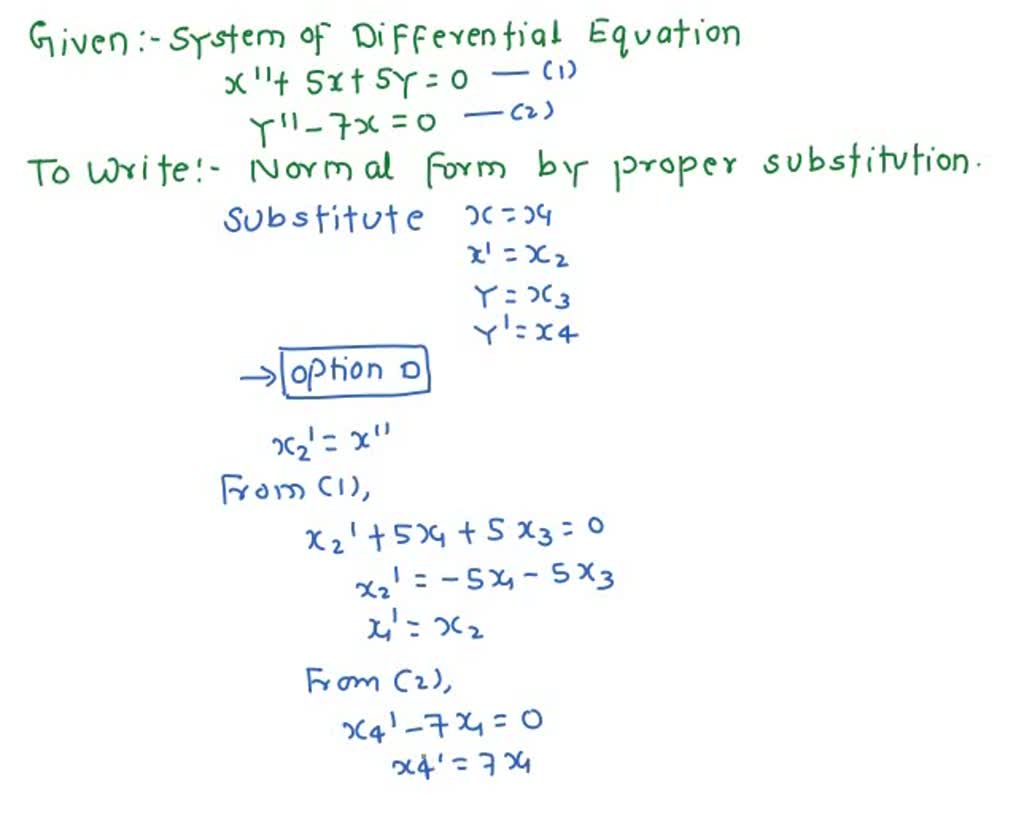 Given:- System of Differential Equation
x'' + 5x + 5y = 0 — (1)
y'' - 7x = 0 — (2)
To write:- Normal form by proper substitution.
Substitute x = x₁
x' = x₂
y = x₃
y' = x₄
→ option D
x₂' = x''
From (1),
x₂' + 5x₁ + 5x₃ = 0
x₂' = -5x₁ - 5x₃
x₁' = x₂
From (2),
x₄' - 7x₁ = 0
x₄' = 7x₁